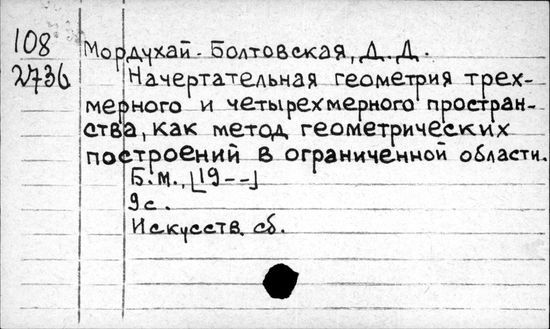 108 Мордухай-Болтовская, Д.Д.
2736 Начертательная геометрия трех-
мерного и четырехмерного простран-
ства, как метод геометрических
построений в ограниченной области.
Б.м., [19--]
9с.
Искусств. сб.